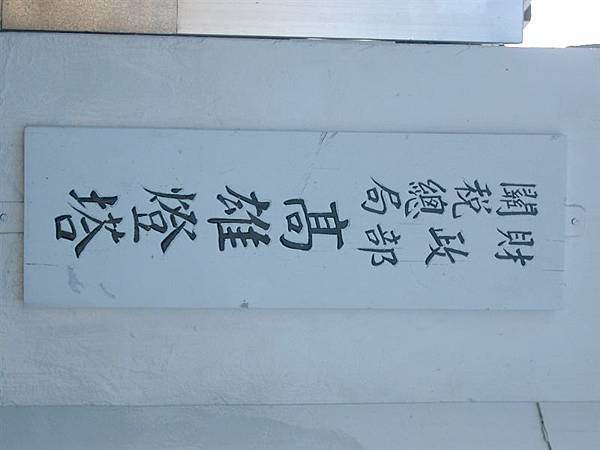 財政部
關稅總局
高雄燈塔